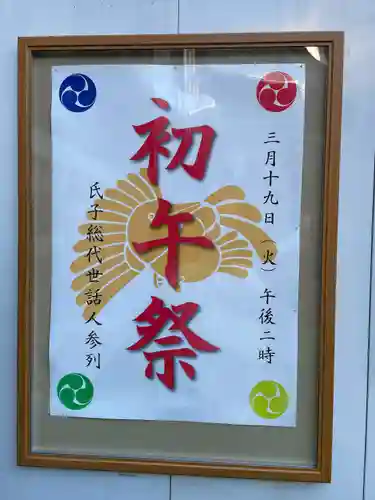 三月十九日（火）午後二時
初午祭
氏子総代世話人参列